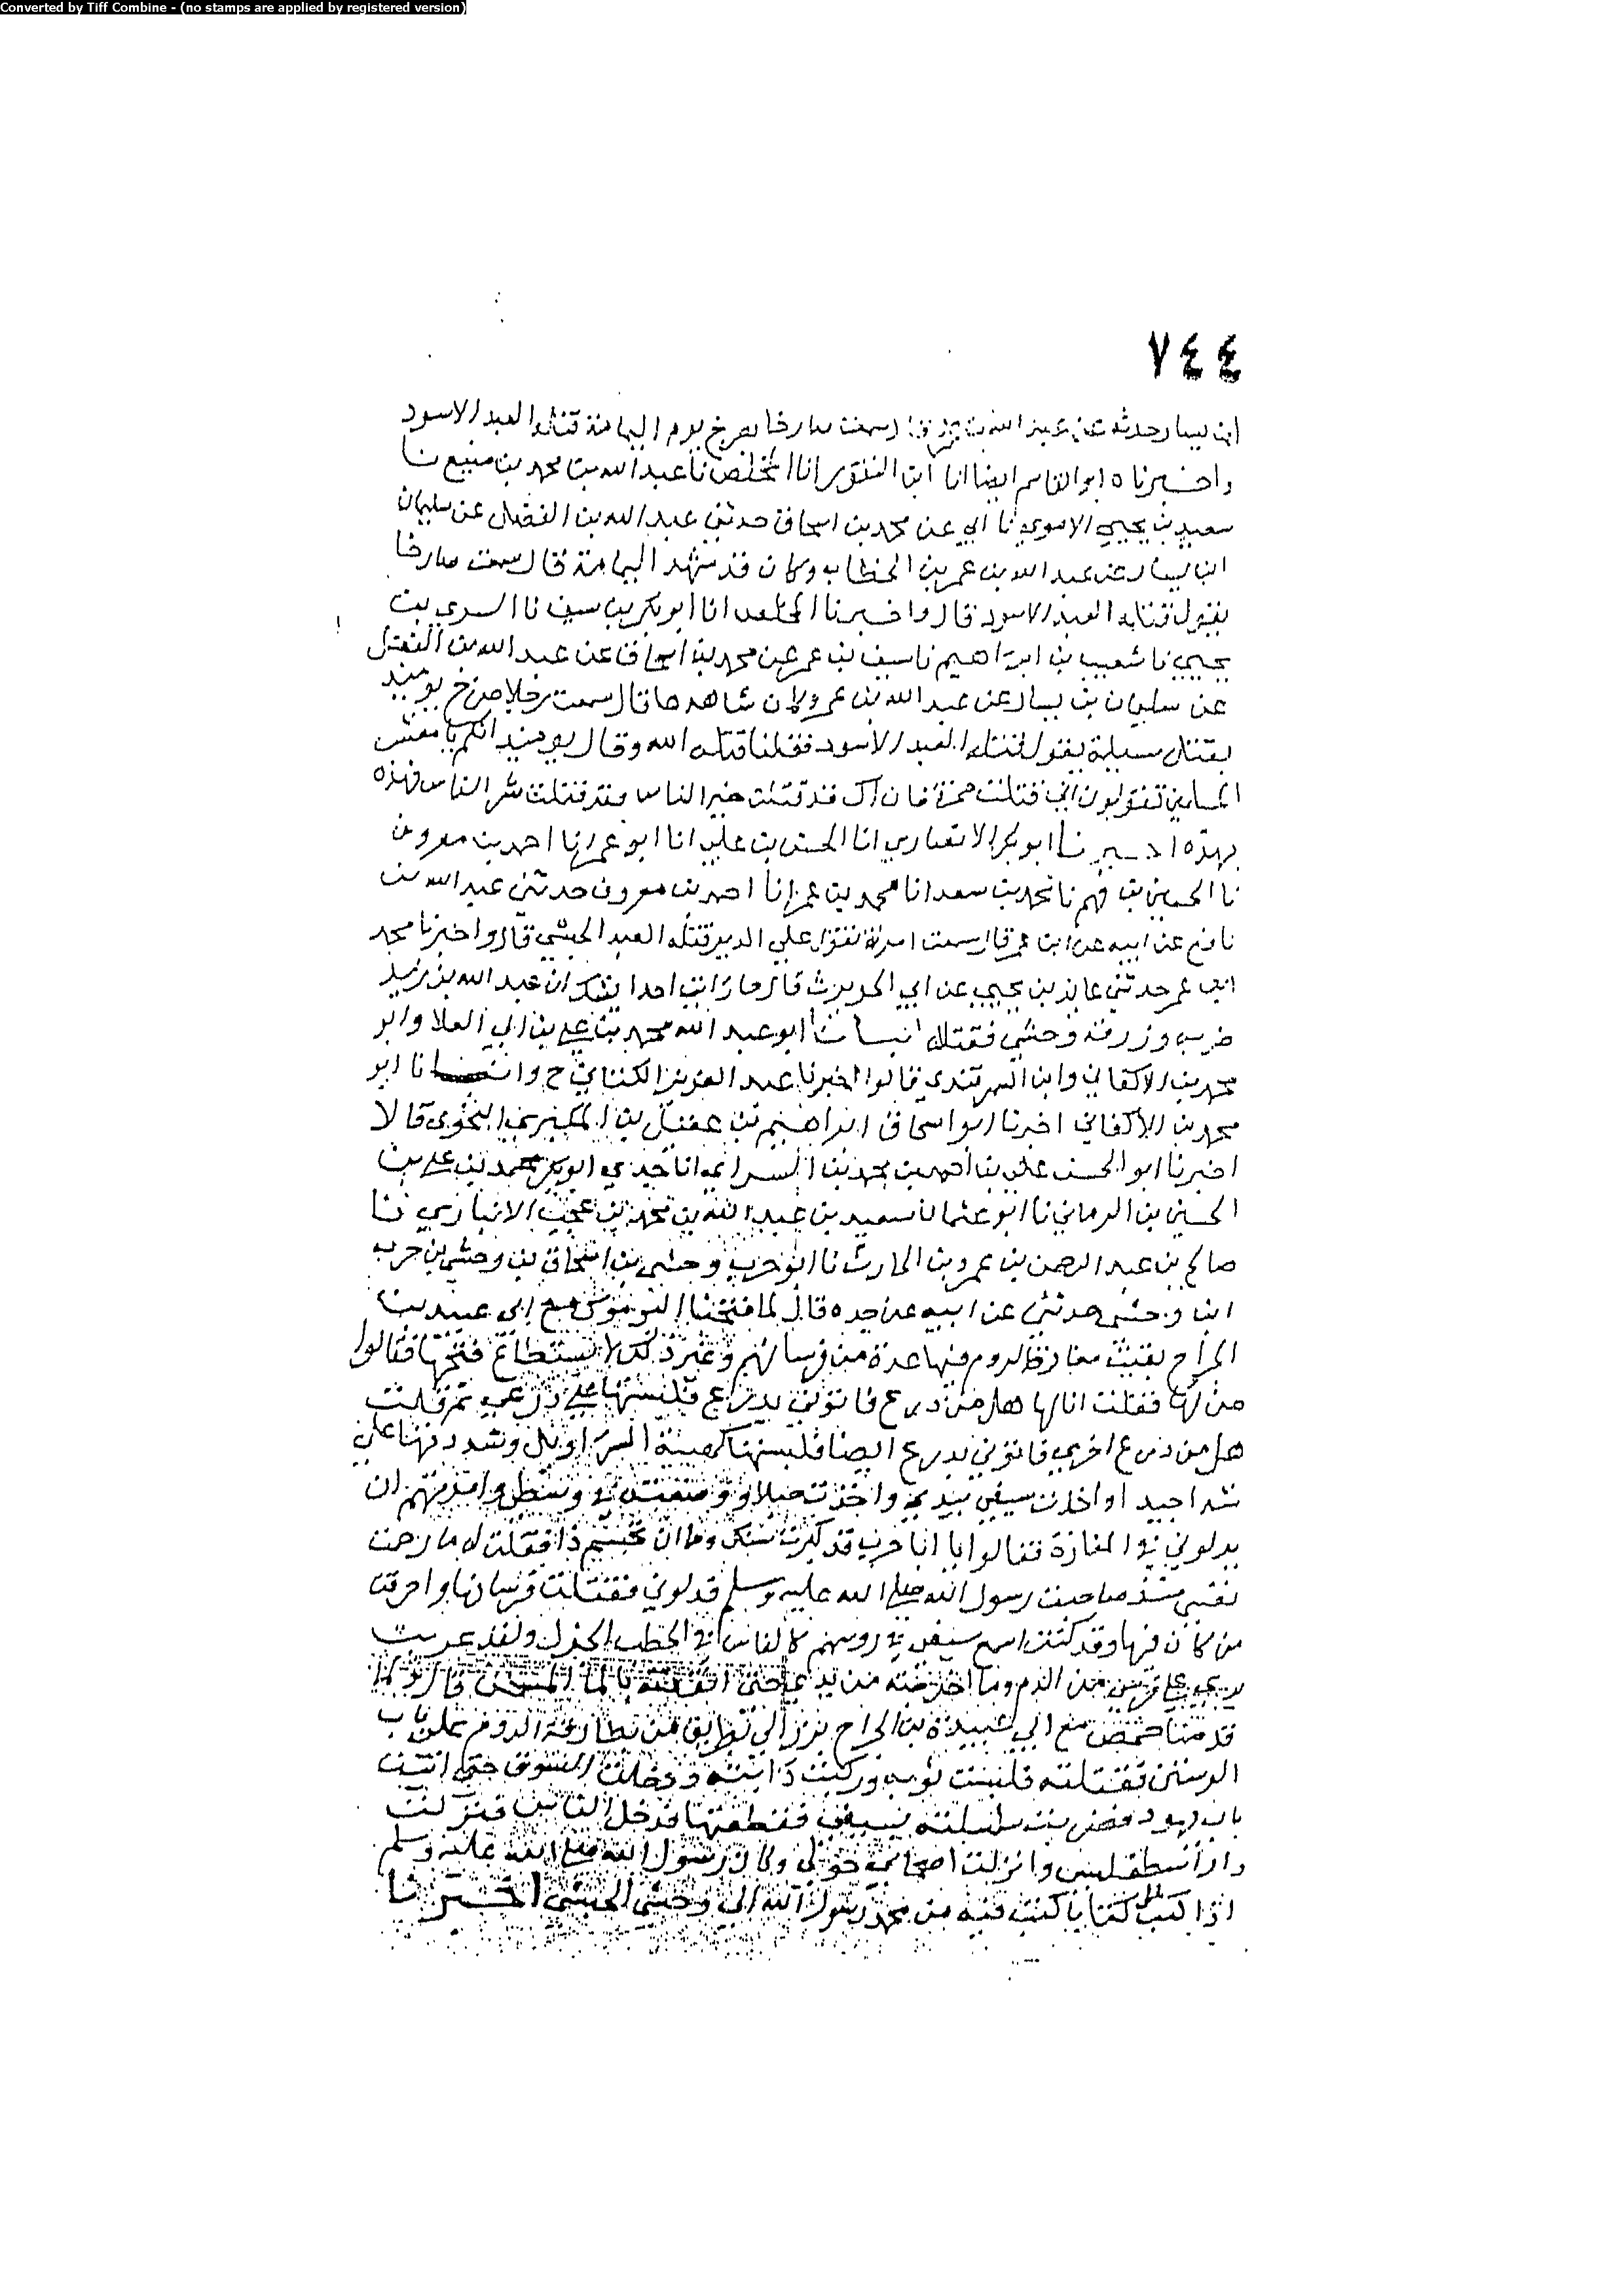 Converted by Tiff Combine - (no stamps are applied by registered version)
٧٤٤
ابن يسار حدثه عن عبد الله بن عمر قال سمعت صارخا يصرخ يوم اليمامة قتله العبد الاسود
واخبرناه ابو القاسم ايضا انا ابن النقور انا المخلص نا عبد الله بن محمد بن منيع نا
سعيد بن يحيي الاموي نا ابي عن محمد بن اسحاق حدثني عبد الله بن الفضل عن سليمان
ابن يسار عن عبد الله بن عمر بن الخطاب وكان قد شهد اليمامة قال سمعت صارخا
يقول قتله العبد الاسود قال واخبرنا المخلص انا ابو بكر بن سيف نا السري بن
يحيي نا شعيب بن ابراهيم نا سيف بن عمر عن محمد بن اسحاق عن عبد الله بن الفضل
عن سليمان بن يسار عن عبد الله بن عمر وكان شاهدها قال سمعت رجلا صرخ يوميذ
بقتل مسيلمة يقول قتله العبد الاسود فقلنا قتله الله وقال يوميذ انكم يا معشر
المسلمين تقولون اني قتلت حمزة فان اك قد قتلت خير الناس فقد قتلت شر الناس فهذه
بهذه اخبرنا ابو بكر الانصاري انا الحسن بن علي انا ابو عمر انا احمد بن معروف
نا الحسين بن فهم نا محمد بن سعد انا محمد بن عمر انا احمد بن معروف حدثني عبد الله بن
نافع عن ابيه عن ابن عمر قال سمعت امراة تقول علي الدير قتله العبد الحبشي قال واخبرنا محمد
ابن عمر حدثني عايذ بن يحيي عن ابي الحويرث قال ما رايت احدا يشك ان عبد الله بن زيد
ضربه وزرقه وحشي فقتله انبانا ابو عبد الله محمد بن علي بن ابي العلا وابو
محمد بن الاكفاني وابن السمرقندي قالوا اخبرنا عبد العزيز الكتاني ح وانبانا ابو
محمد بن الاكفاني اخبرنا ابو اسحاق ابراهيم بن عقيل بن المكبري النحوي قالا
اخبرنا ابو الحسن علي بن احمد بن محمد بن السرابي انا جدي ابو بكر محمد بن علي بن
الحسين بن الرماني نا ابو عثمان سعيد بن عبد الله بن محمد بن عجب الانباري نا
صالح بن عبد الرحمن بن عمرو بن الحارث نا ابو حرب وحشي بن اسحاق بن وحشي بن حرب
ابن وحشي حدثني عن ابيه عن جده قال لما فتحنا مع ابي عبيد بن
الجراح بقيت مغارة الروم فيها عدة من فرسانهم وغير ذلك لا يستطاع فتحها فقالوا
من لها فقلت انا لها هل من درع فاتوني بدرع فلبستها علي درعي ثم قلت
هل من درع اخري فاتوني بدرع ايضا فلبستها كهيئة السراويل وشددتها علي
شدا جيدا واخذت سيفي بيدي واخذت حبلا و وسطي وامرتهم ان
يدلوني في المغارة فقالوا يا ابا حرب قد كبرت سنك فقلت له ما زحت
نفسي منذ صاحبت رسول الله صلي الله عليه وسلم فدلوني فقتلت فرسانها واحرقت
من كان فيها وقد كنت اسمع سيفي في روسهم كالفاس في الحطب الجزل ولقد غريت
يدي علي قرني من الدم وما اخرجته من يدي حتي بالما المسخن قال ولما
قدمنا حمص مع ابي عبيدة بن الجراح برز الي بطريق من بطارقة الروم علي باب
الرستن فقتلته فلبست ثوبه وركبت دابته ودخلت السوق حتي اتيت
باب يهود فضربت سلسلته بسيفي فقطعتها فدخل الناس فنزلت
دار وانزلت اصحابي حولي وكان رسول الله صلي الله عليه وسلم
اذا كتب كتابا كتب فيه من محمد رسول الله الي وحشي الحبشي اخبرنا